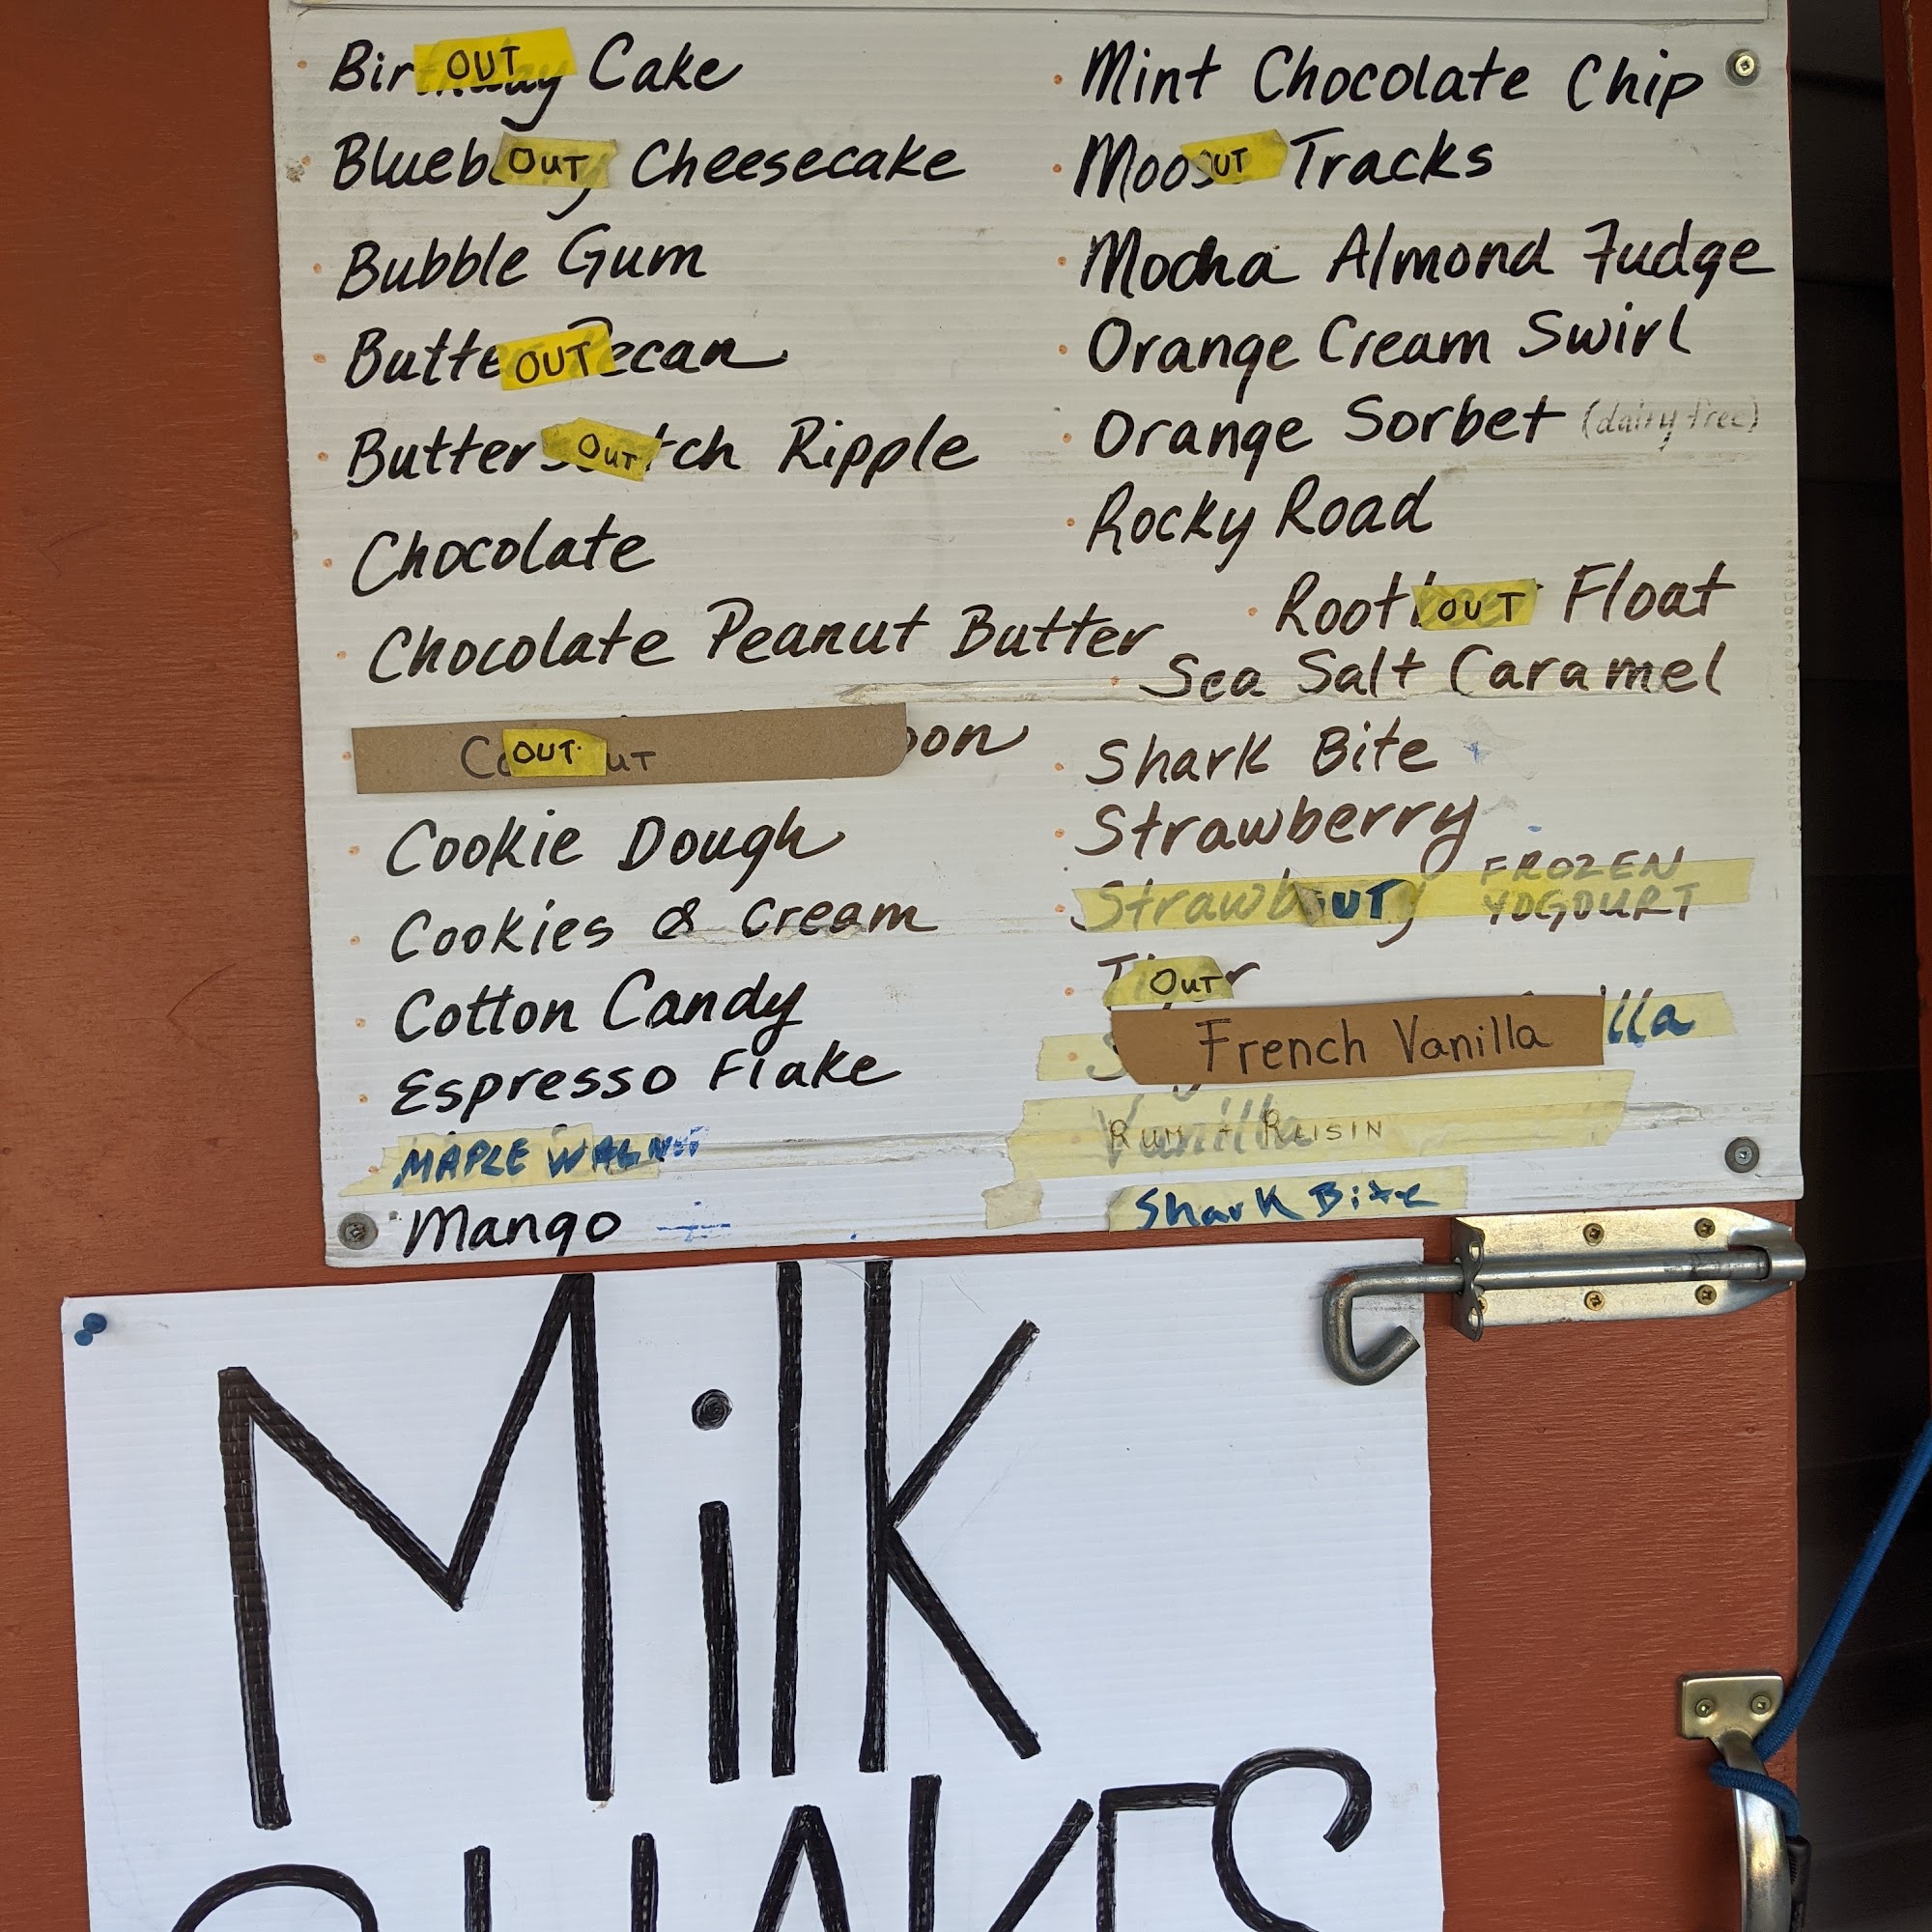 Birthday Cake
OUT
Blueberry Cheesecake
OUT
Bubble Gum
Butter Pecan
OUT
Butterscotch Ripple
OUT
Chocolate
Chocolate Peanut Butter
OUT
Cookie Dough
Cookies & Cream
Cotton Candy
Espresso Flake
MAPLE WALNUT
Mango
Mint Chocolate Chip
Moose Tracks
OUT
Mocha Almond Fudge
Orange Cream Swirl
Orange Sorbet (dairy free)
Rocky Road
Rootbeer Float
OUT
Sea Salt Caramel
Shark Bite
Strawberry
Strawberry FROZEN YOGOURT
OUT
Tiger
OUT
French Vanilla
RUM + RAISIN
Vanilla
Shark Bite
Milk
SHAKES